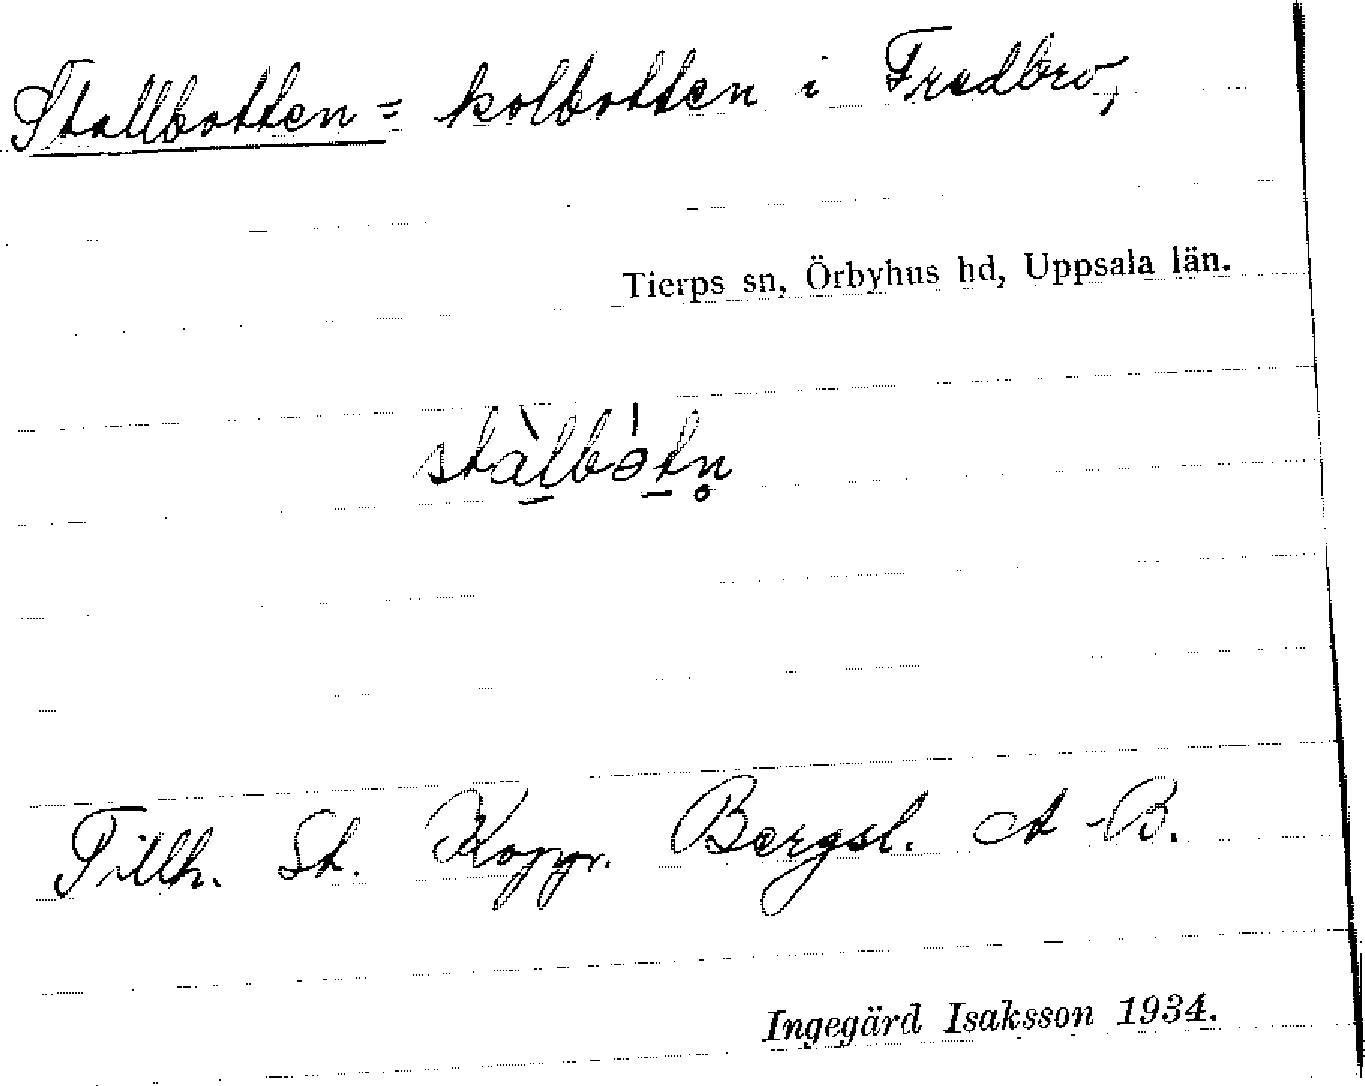 Stallbotten = kolbotten i Fredbro,
Tierps sn, Örbyhus hd, Uppsala län.
stàlbə́tn̥
Tillh. St. Koppr. Bergsl. A-B.
Ingegärd Isaksson 1934.